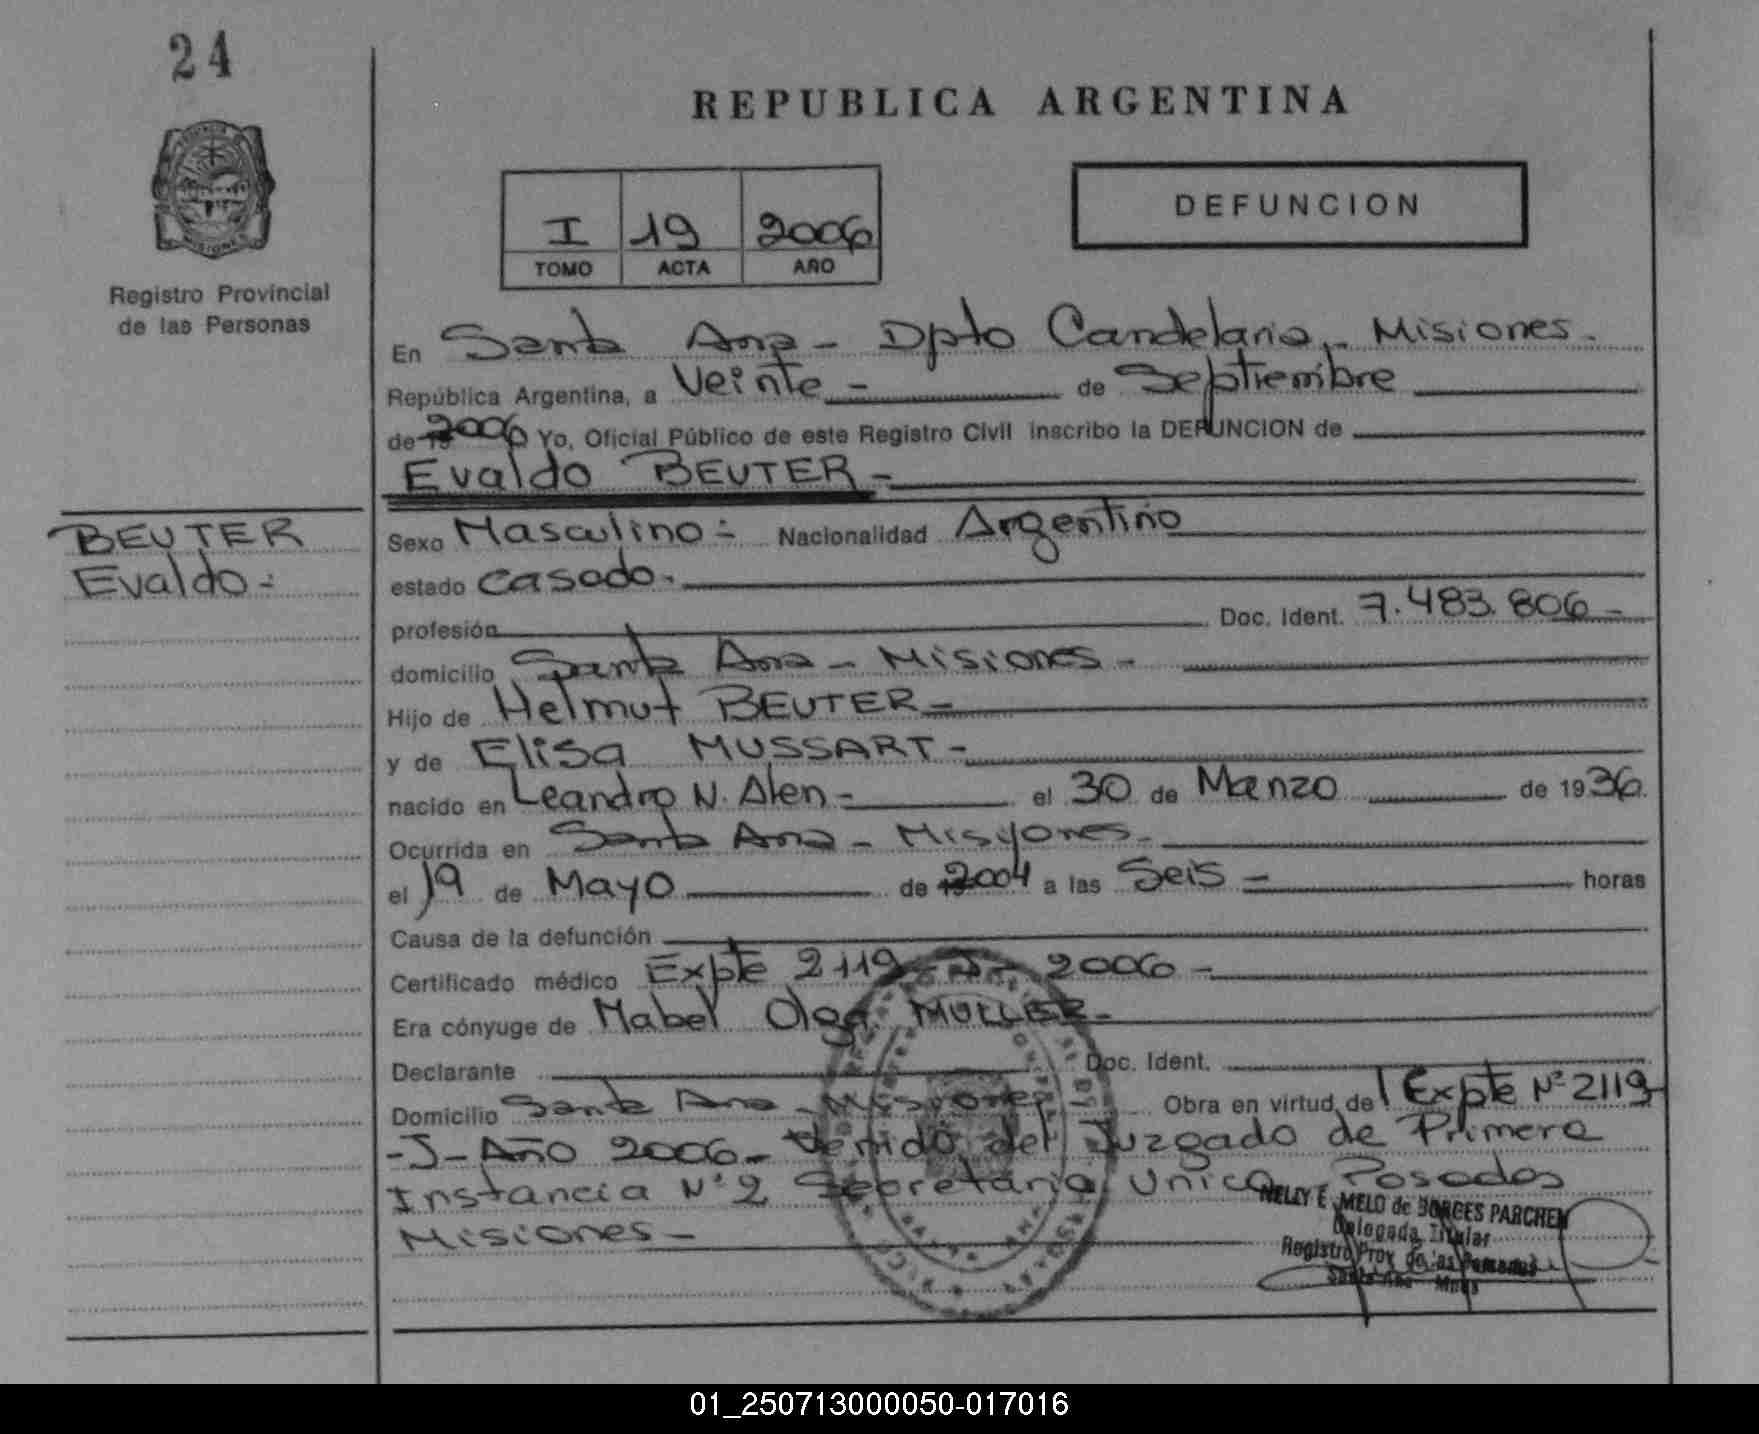 24
REPUBLICA ARGENTINA
MISIONES
Registro Provincial
de las Personas
I 19 2006
TOMO ACTA AÑO
DEFUNCION
En Santa Ana - Dpto Candelaria - Misiones.
República Argentina, a Veinte - de Septiembre
de 2006 Yo, Oficial Público de este Registro Civil inscribo la DEFUNCION de
Evaldo BEUTER -
BEUTER
Evaldo -
Sexo Masculino - Nacionalidad Argentino
estado casado.
profesión Doc. Ident. 7.483.806 -
domicilio Santa Ana - Misiones -
Hijo de Helmut BEUTER -
y de Elisa MUSSART -
nacido en Leandro N. Alen - el 30 de Marzo de 1936.
Ocurrida en Santa Ana - Misiones -
el 19 de Mayo de 2004 a las Seis - horas
Causa de la defunción
Certificado médico Expte 2119 - J - 2006 -
Era cónyuge de Mabel Olga MULLER -
Declarante Doc. Ident.
Domicilio Santa Ana - Misiones Obra en virtud de Expte Nº 2119
- J - Año 2006 - Venido del Juzgado de Primera
Instancia Nº 2 Secretaria Unica - Posadas
Misiones -
NELLY E. MELO de BORGES PARCHEN
Delegada Titular
Registro Prov. de las Personas
Santa Ana - Mnes
01_250713000050-017016